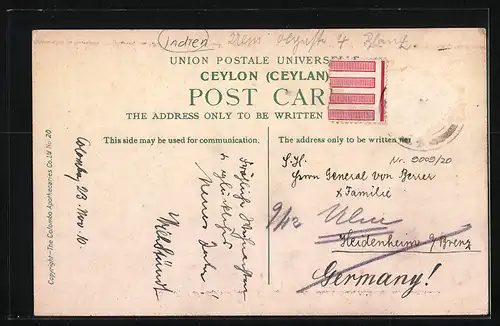 Indien
UNION POSTALE UNIVERSE
CEYLON (CEYLAN)
POST CAR
THE ADDRESS ONLY TO BE WRITTEN
This side may be used for communication.
The address only to be written
Copyright—The Colombo Apothecaries Co. Ld No 20
Colombo 23. Nov. 10.
Fröhliche Weihnachten
& glückliches
Neues Jahr!
Nr. 9009/20
S. H.
Herrn General von Berrer
& Familie
9/12 Ulm
Heidenheim a/Brenz
Germany!